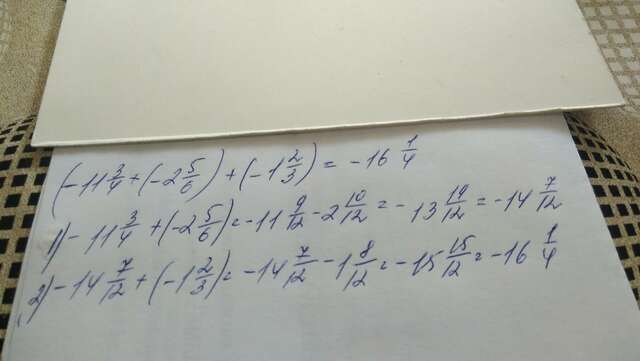 (-11 3/4 + (-2 5/6) + (-1 2/3) = -16 1/4
1) -11 3/4 + (-2 5/6) = -11 9/12 - 2 10/12 = -13 19/12 = -14 7/12
2) -14 7/12 + (-1 2/3) = -14 7/12 - 1 8/12 = -15 15/12 = -16 1/4